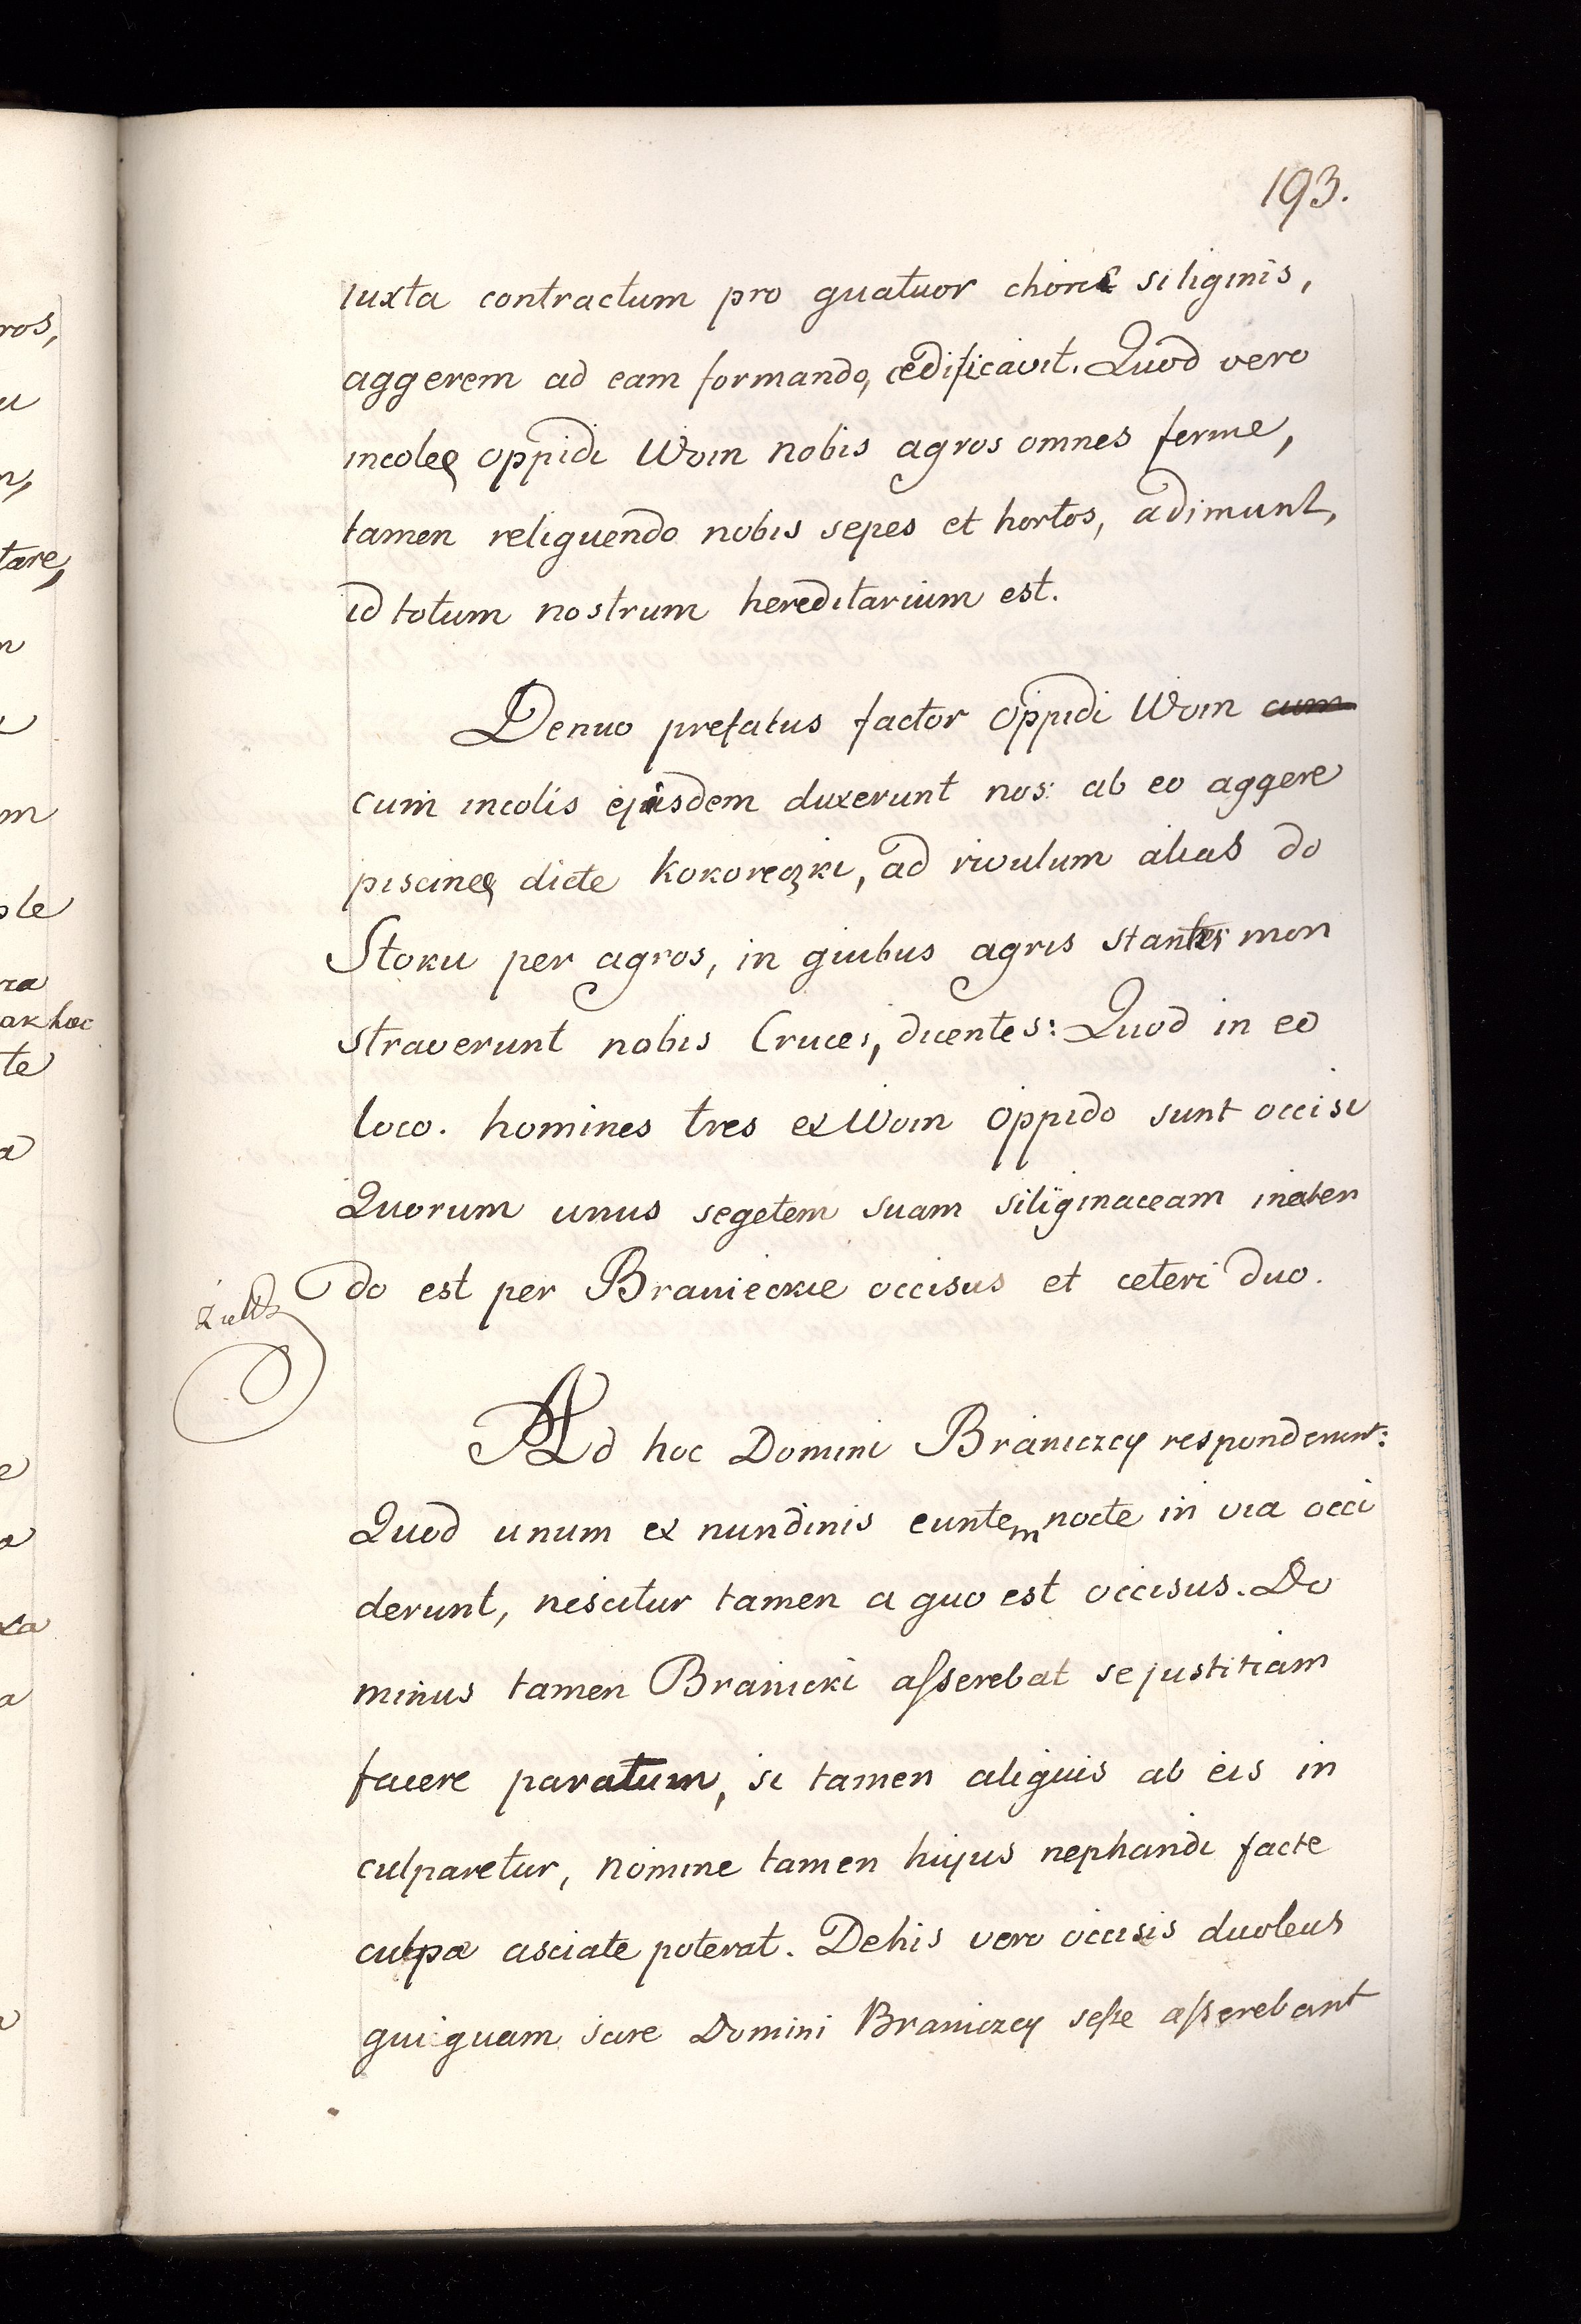 193.
iuxta contractum pro quatuor choris siliginis,
aggerem ad eam formando, ædificavit. Quod vero
incolę oppidi Woin nobis agros omnes ferme,
tamen reliquendo nobis sepes et hortos, adimunt,
id totum nostrum hereditarium est.
Denuo prefatus factor oppidi Woin cum
cum incolis ejusdem duxerunt nos ab eo aggere
piscinę dicte Kokoreczki, ad rivulum alias do
Stoku per agros, in quibus agris stantes mon
straverunt nobis Cruces, dicentes: Quod in eo
loco. homines tres ex Woin oppido sunt occisi
Quorum unus segetem suam siliginaceam meten
do est per Branieckie occisus et ceteri duo.
Ad hoc Domini Braniczcy responderunt:
Quod unum ex nundinis euntem nocte in via occi
derunt, nescitur tamen a quo est occisus. Do
minus tamen Branicki asserebat se justitiam
facere paratum, si tamen aliquis ab eis in
culparetur, nomine tamen hujus nephandi facte
culpa asciate poterat. De his vero occisis duobus
quiquam scire Domini Braniczcy sesse asserebant
ros,
tare,
m
ple
ra
ak hoc
te
xa